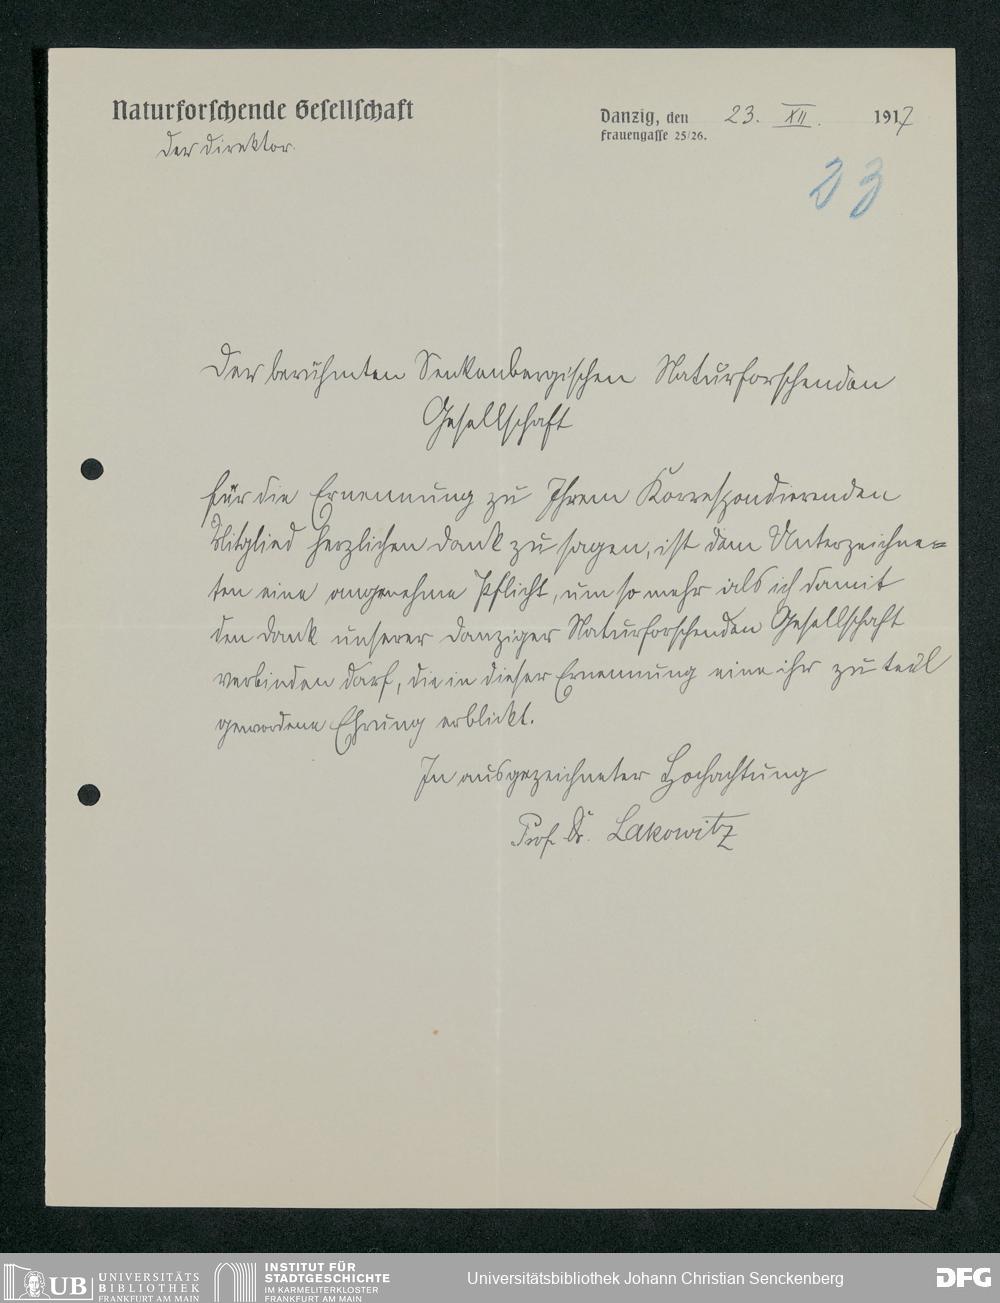 Naturforschende Gesellschaft
Der Direktor.
Danzig, den 23. XII. 1917
Frauengasse 25/26.
23
Der berühmten Senkenbergischen Naturforschenden
Gesellschaft
für die Ernennung zu Ihrem Korrespondierenden
Mitglied herzlichen Dank zu sagen, ist dem Unterzeichne=
ten eine angenehme Pflicht, um so mehr als ich damit
den Dank unserer Danziger Naturforschenden Gesellschaft
verbinden darf, die in dieser Ernennung eine ihr zu teil
gewordene Ehrung erblickt.
In ausgezeichneter Hochachtung
Prof. Dr. Lakowitz
UB UNIVERSITÄTS
BIBLIOTHEK
FRANKFURT AM MAIN
INSTITUT FÜR
STADTGESCHICHTE
IM KARMELITERKLOSTER
FRANKFURT AM MAIN
Universitätsbibliothek Johann Christian Senckenberg
DFG